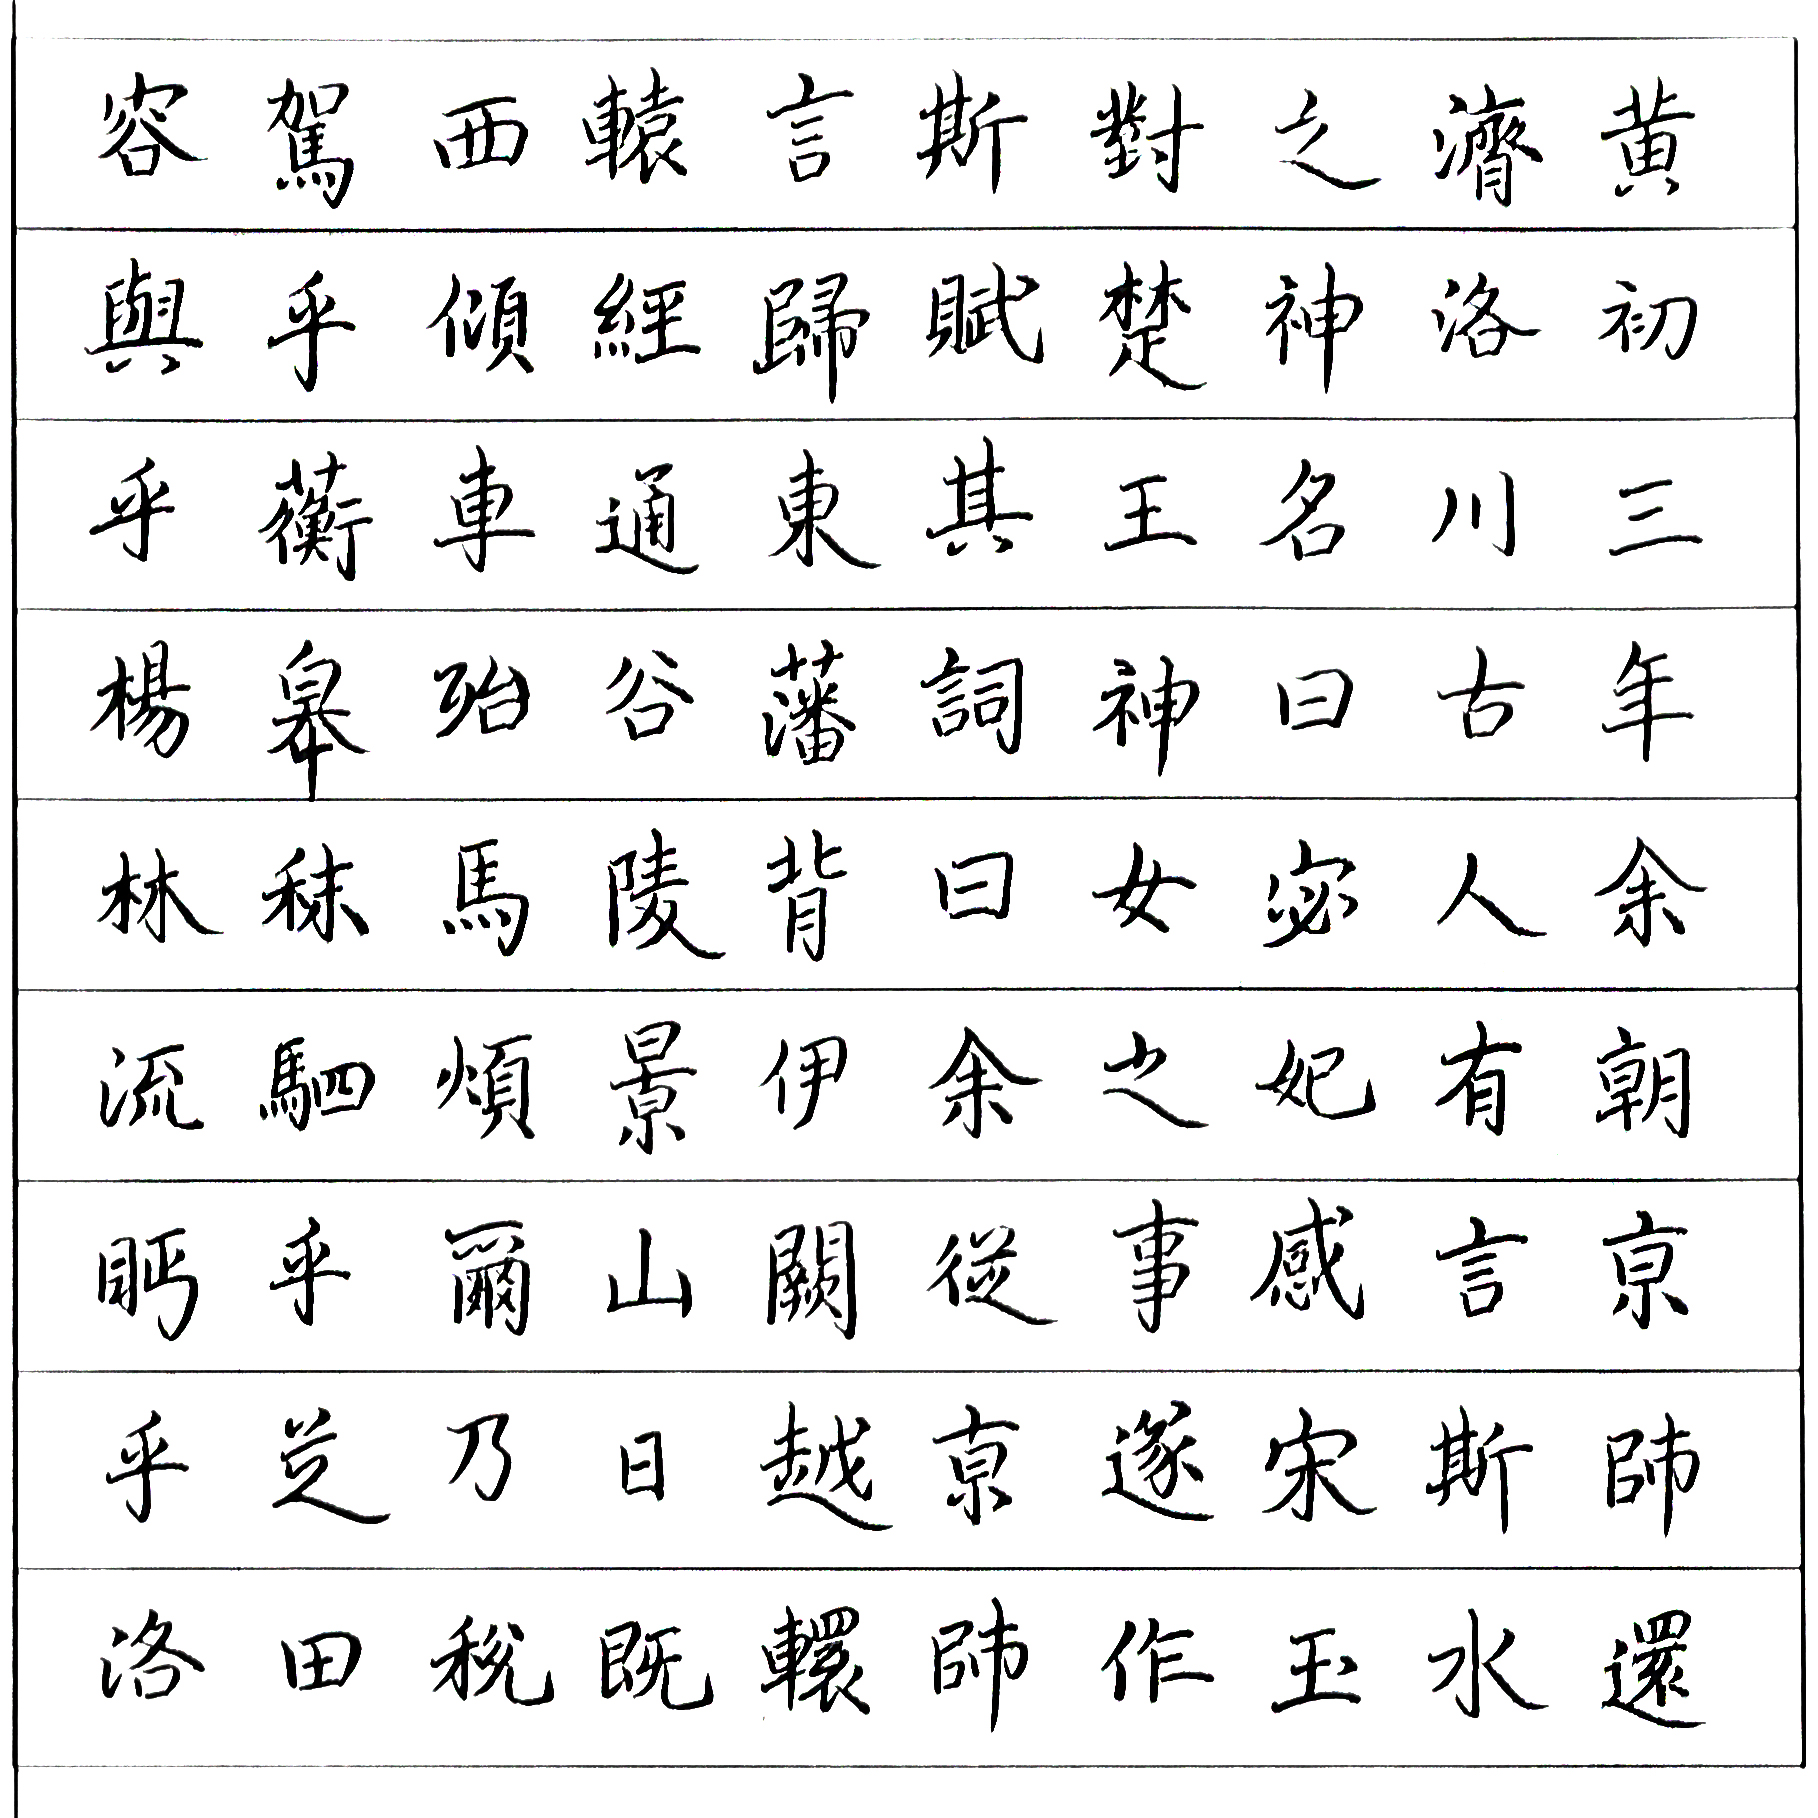 黄初三年余朝亰師還
濟洛川古人有言斯水
之神名曰宓妃感宋玉
對楚王神女之事遂作
斯賦其詞曰余從亰師
言歸東藩背伊闕越轘
轅經通谷陵景山日既
西傾車殆馬煩爾乃税
駕乎蘅皋秣駟乎芝田
容與乎楊林流眄乎洛